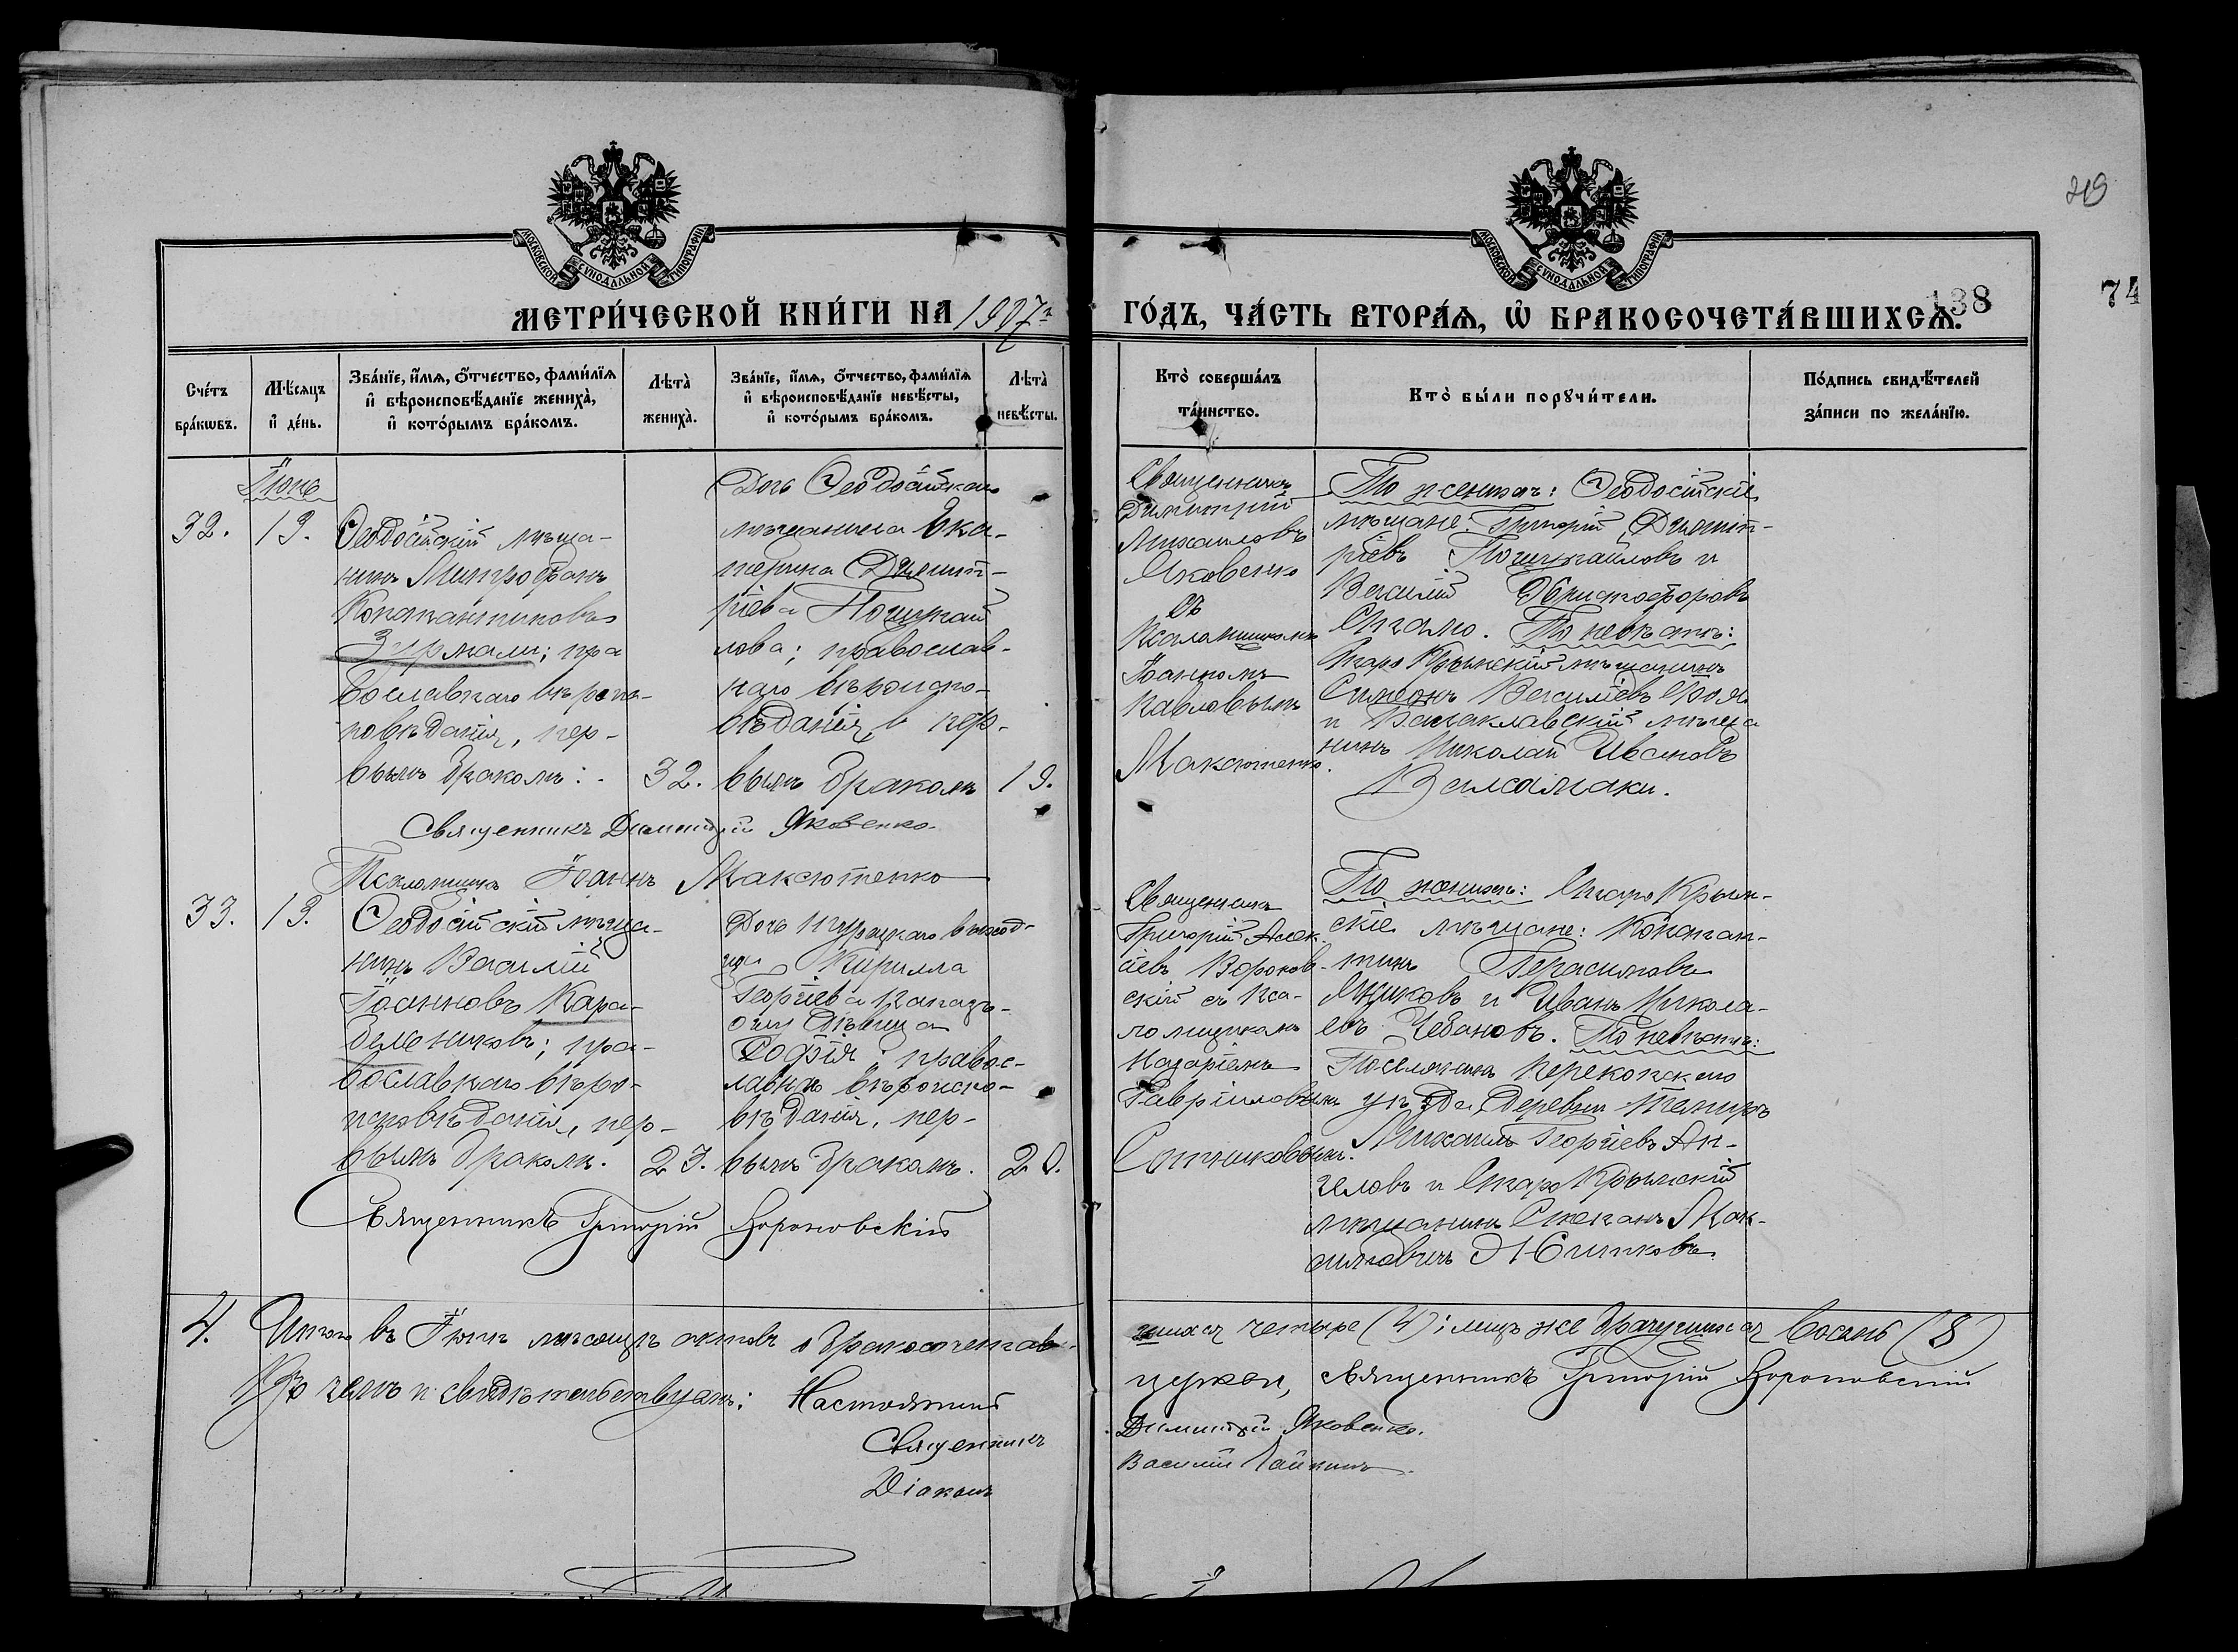 219
МОСКОВСКОЙ СѴНОДАЛЬНОЙ ТИПОГРАФІИ
МОСКОВСКОЙ СѴНОДАЛЬНОЙ ТИПОГРАФІИ
МЕТРИ́ЧЕСКОЙ КНИ́ГИ НА 1907 г ГО́ДЪ, ЧА́СТЬ ВТОРА́Ѧ, Ѽ БРАКОСОЧЕТА́ВШИХСѦ.
138
74
Сче́тъ бра́кωвъ.
Мѣ́сяцъ и҆ де́нь.
Зва́нїе, и҆́мя, ѻ҆́тчество, фами́лїя
и҆ вѣроисповѣ́данїе жениха̀,
и҆ кото́рымъ бра́комъ.
Лѣта̀ жениха̀.
Зва́нїе, и҆́мя, ѻ҆́тчество, фами́лїя
и҆ вѣроисповѣ́данїе невѣ́сты,
и҆ кото́рымъ бра́комъ.
Лѣта̀ невѣ́сты.
Кто̀ соверша́лъ та́инство.
Кто̀ бы́ли порꙋчи́тели.
По́дпись свидѣ́телей
за́писи по жела́нїю.
Іюнь
32. 19.
Ѳеодосійскій мѣща-
нинъ Митрофанъ
Константиновъ
; пра
вославнаго вѣроис-
повѣданія, пер-
вымъ бракомъ: 32.
Дочь Ѳеодосійскаго
мѣщанина Ека-
терина Димит-
ріева
лова; православ-
наго вѣроиспо-
вѣданія, пер-
вымъ бракомъ 19.
Священникъ
Димитрій
Михаиловъ
Яковенко
съ
Псаломщикомъ
Іоанномъ
Павловымъ
Максютенко.
По женихѣ: Ѳеодосійскіе
мѣщане: Григорій Димит-
ріевъ и
Василій
По невѣстѣ:
Старо Крымскій мѣщанинъ
Симеонъ Василіевъ
и Балаклавскій мѣща
нинъ Николай Ивановъ
Валсамаки.
Священникъ Димитрій Яковенко.
Псаломщикъ Іоаннъ Максютенко
33. 19.
Ѳеодосійскій мѣща-
нинъ Василій
Іоанновъ Кара-
; пра-
вославнаго вѣро-
исповѣданія, пер-
вымъ бракомъ. 23.
Дочь Турецкаго выход-
ца Кирилла
Георгіева
дѣвица
Софія; правос-
лавнаго вѣроиспо-
вѣданія, пер-
вымъ бракомъ. 20.
Священникъ
Григорій Алек-
сіевъ Воронов-
скій съ Пса-
ломщикомъ
Назаріемъ
Гавріиловымъ
Сотниковымъ.
По женихѣ: Старо Крым-
скіе мѣщане: Констан-
тинъ Герасимовъ
и Иванъ Никола-
евъ Чебановъ. По невѣстѣ:
Поселянинъ Перекопскаго
уѣзда, деревни
Михаилъ Георгіевъ Ан-
геловъ и Старо Крымскій
мѣщанинъ Стефанъ Мак-
симовичъ
Священникъ Григорій Вороновскій
4. Итого въ Іюнѣ мѣсяцѣ актовъ о бракосочетав-
шихся четыре (4); лицъ же брачущихся восемь (8)
Въ чемъ и свидѣтельствуемъ: Настоятель
церкви, священникъ Григорій Вороновскій
Священникъ Димитрій Яковенко.
Діаконъ Василій